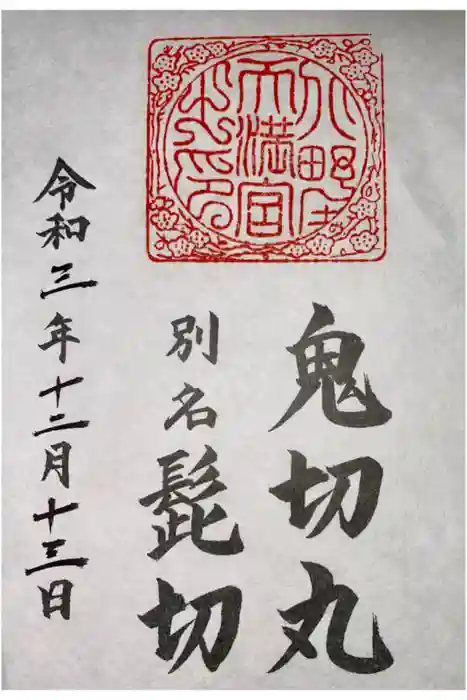 天満宮
鬼切丸
別名髭切
令和三年十二月十三日